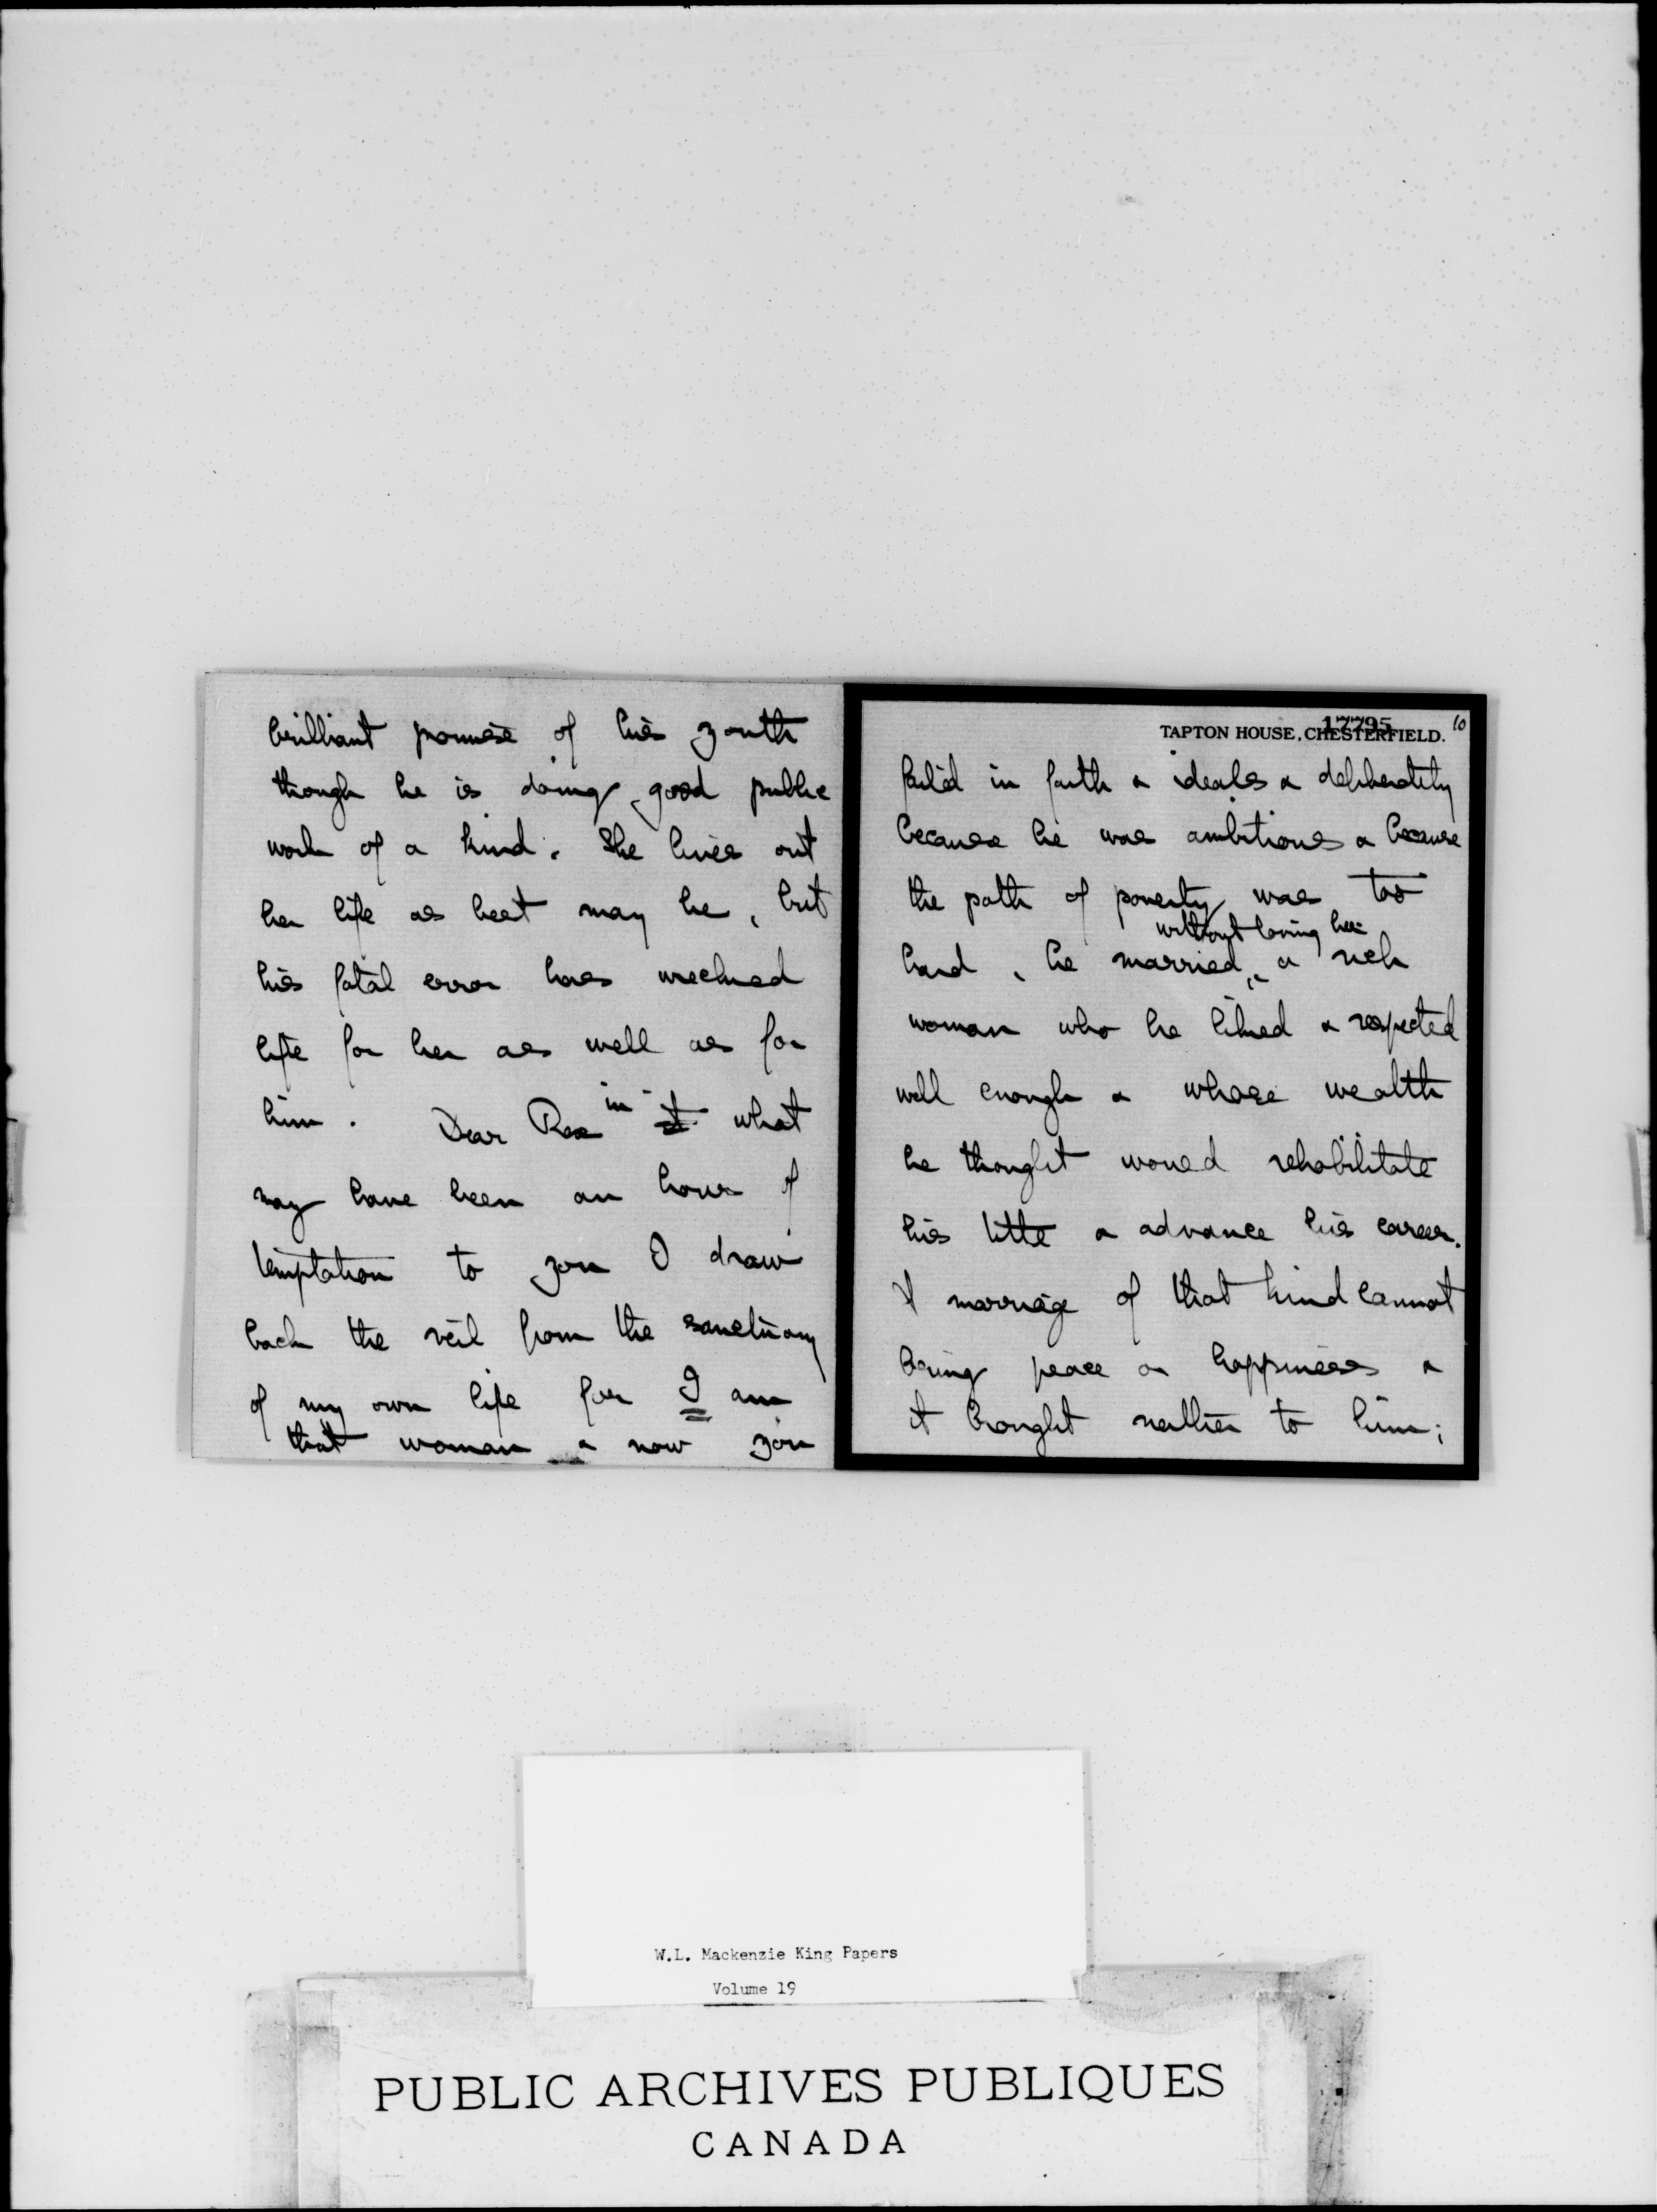 brilliant promise of his youth
though he is doing good public
work of a kind. She lives out
her life as best may be, but
his fatal error has wrecked
life for her as well as for
him. Dear Rex in it what
may have been an hour of
temptation to you I draw
back the veil from the sanctuary
of my own life for I am
that woman & now you
17795
TAPTON HOUSE, CHESTERFIELD. 10
fail'd in faith & ideals & deliberately
because he was ambitious & because
the path of poverty was too
without loving her
hard, he married, a rich
woman who he liked & respected
well enough & whose wealth
he thought would rehabilitate
his title & advance his career.
A marriage of that kind cannot
bring peace or happiness &
it brought neither to him;
W.L. Mackenzie King Papers
Volume 19
PUBLIC ARCHIVES PUBLIQUES
CANADA